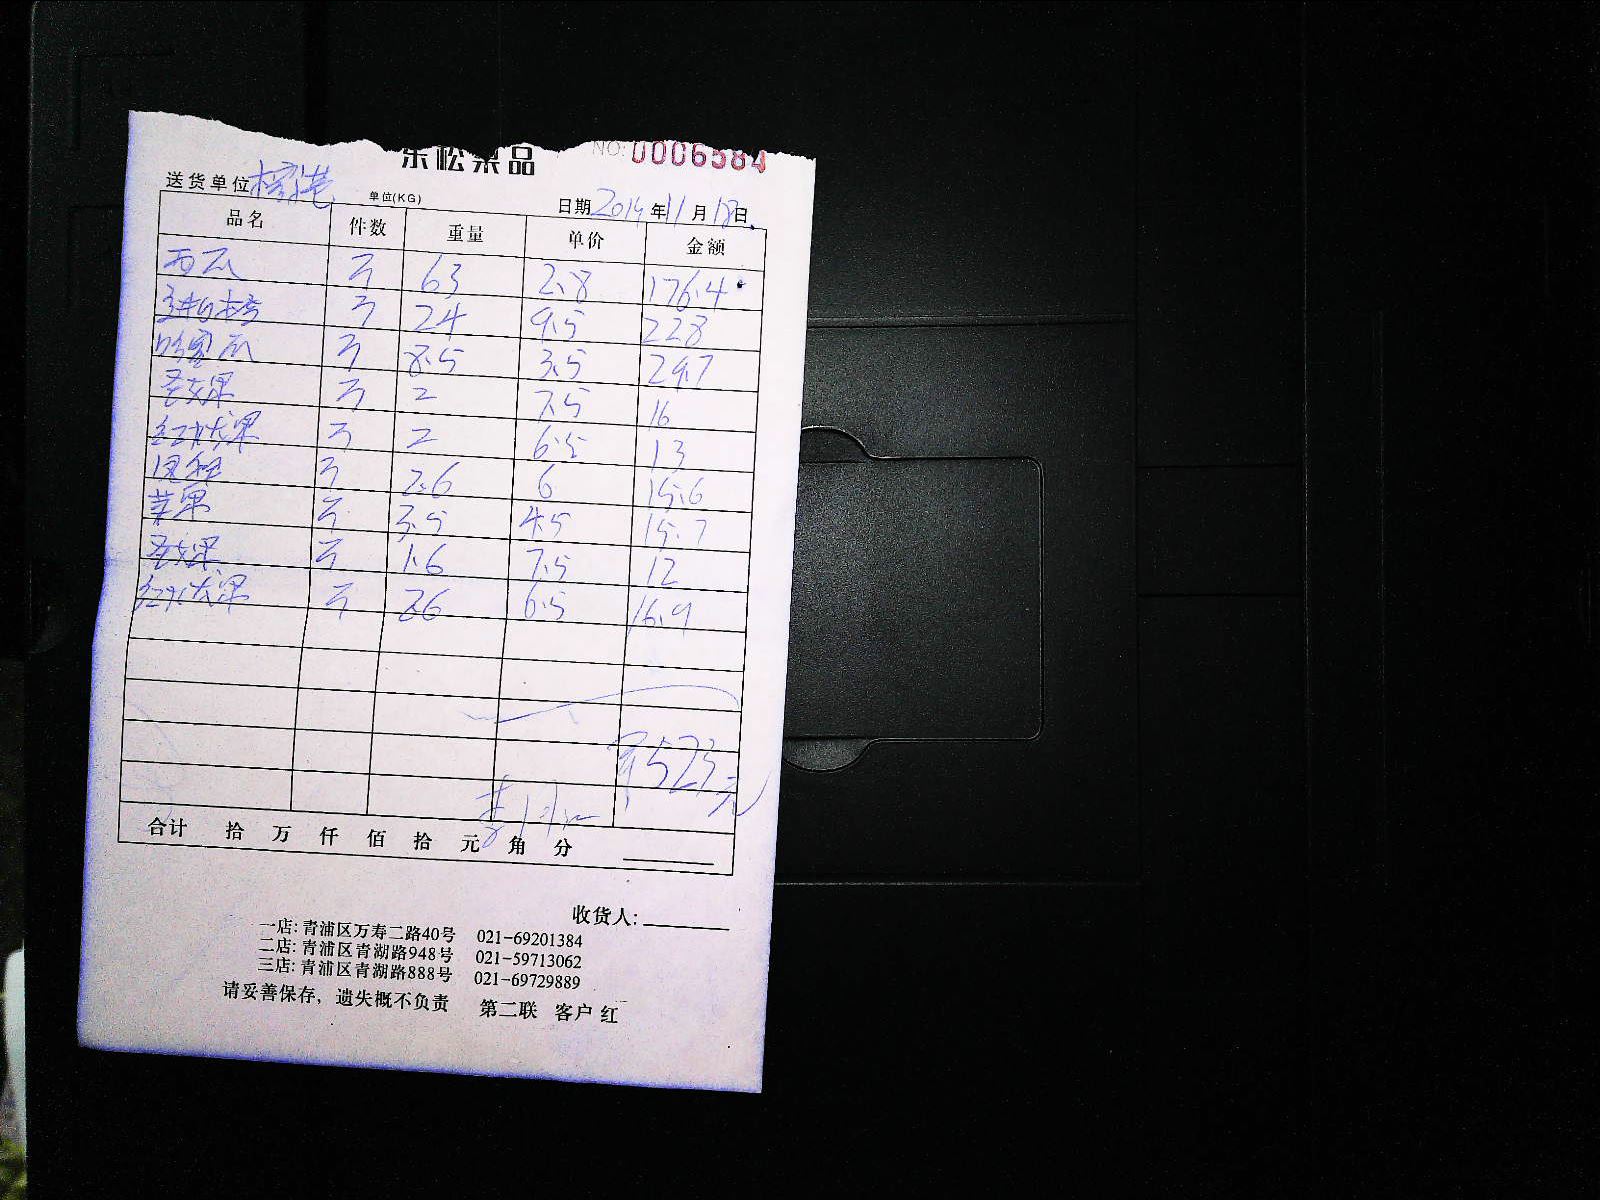 松果品 NO:0006584
送货单位 单位(KG) 日期2014年11月18日
品名 件数 重量 单价 金额
西瓜 63 2.8 176.4
24 9.5 228
哈蜜瓜 8.5 3.5 29.7
圣女果 2 7.5 16
红火龙果 2 6.5 13
凤梨 2.6 6 15.6
苹果 3.5 4.5 15.7
圣女果 1.6 7.5 12
红火龙果 2.6 6.5 16.9
523元
合计 拾 万 仟 佰 拾 元 角 分
收货人:
一店: 青浦区万寿二路40号 021-69201384
二店: 青浦区青湖路948号 021-59713062
三店: 青浦区青湖路888号 021-69729889
请妥善保存, 遗失概不负责 第二联 客户 红